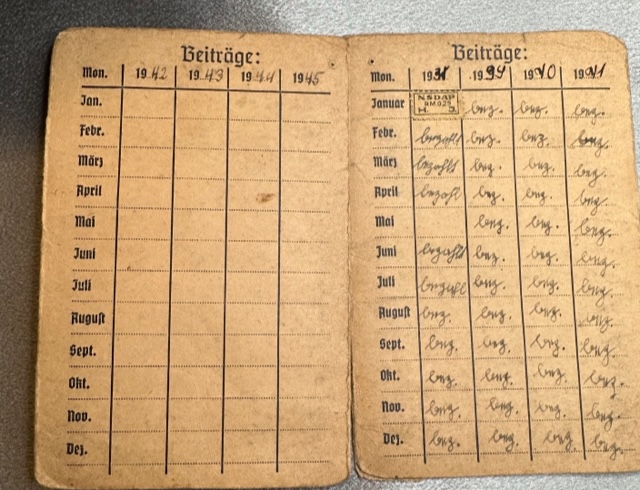 Beiträge:
Mon. 1942 1943 1944 1945
Jan.
Febr.
März
April
Mai
Juni
Juli
August
Sept.
Okt.
Nov.
Dez.
Beiträge:
Mon. 1938 1939 1940 1941
Januar NSDAP bez. bez. bez.
H. J.
Febr. bezahlt bez. bez. bez.
März bezahlt bez. bez. bez.
April bezahl bez. bez. bez.
Mai bez. bez. bez.
Juni bezahlt bez. bez. bez.
Juli bezahlt bez. bez. bez.
August bez. bez. bez. bez.
Sept. bez. bez. bez. bez.
Okt. bez. bez. bez. bez.
Nov. bez. bez. bez. bez.
Dez. bez. bez. bez. bez.